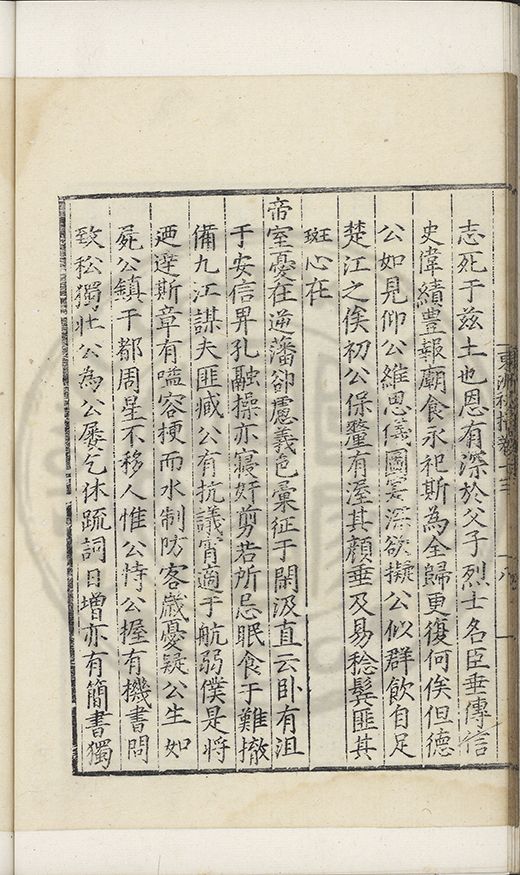 志死于兹土也恩有深於父子烈士名臣垂傳信
史偉績豊報廟食永祀斯為全歸更復何俟但德
公如見仰公維思儀圖寔深欲擬公似群飲自足
楚江之俟初公保釐有渥其顔垂及易稔鬂匪其
斑心在
帝室憂在逆藩卻慮義色彙征于閑汲直云卧有沮
于安信畀孔融操亦寢奸剪若所忌眠食于難撤
備九江謀夫匪臧公有抗議宵適于航弱僕是將
迺達斯章有嗌容梗而水制防客歳憂疑公生如
屍公鎮于都周星不移人惟公恃公握有機書問
致私獨壯公為公屡乞休疏詞日増亦有簡書獨
東洲初稿卷十三
八